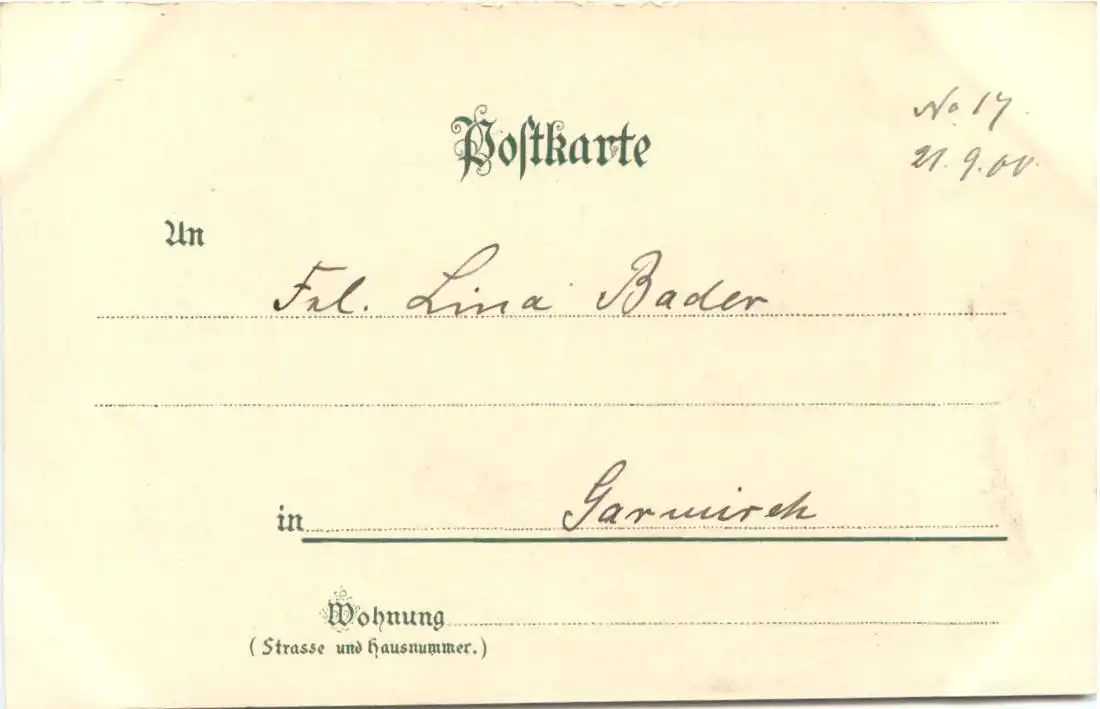 Postkarte
No 17
21.9.00
An
Frl. Lina Bader
in Garmisch
Wohnung
(Strasse und Hausnummer.)